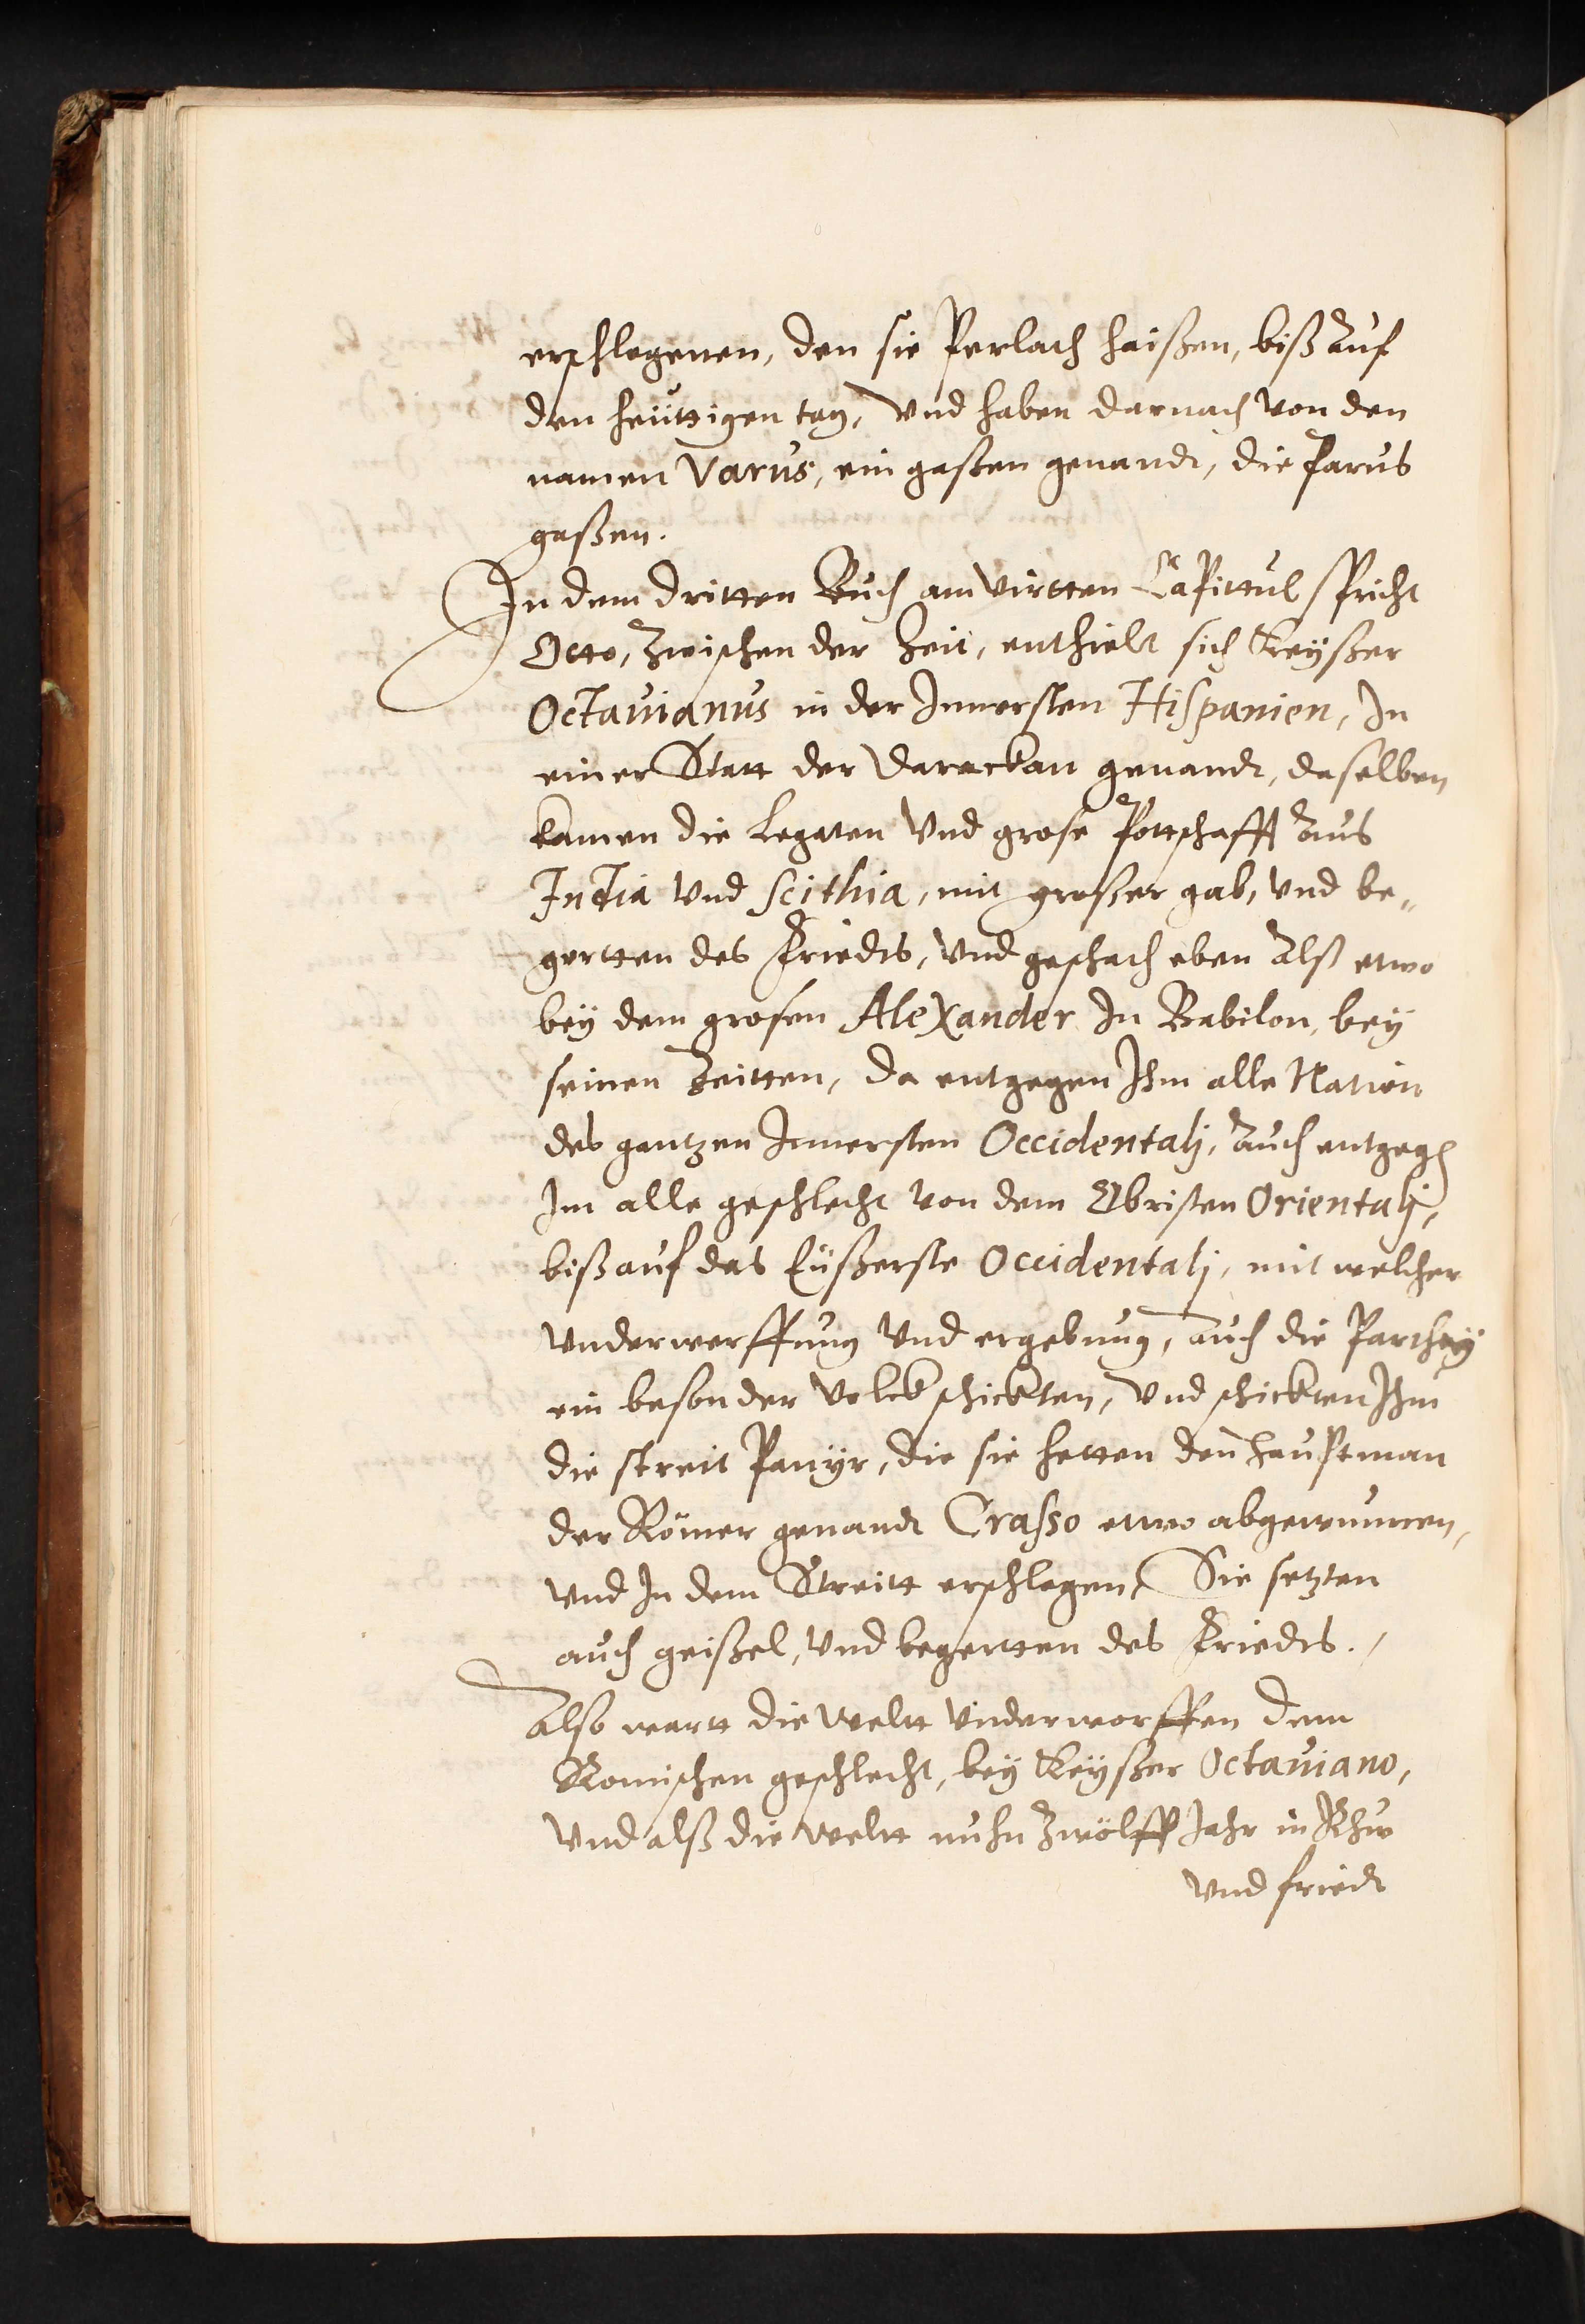 erschlagenen, den sie Perlach haißen, biß auf
den heuttigen tag, vnd haben darnach von den
namen Varus, ein gaßen genandt, die Parus
gaßen.
In dem dritten Buch am virtten Capittul spricht
Otto, zwischen der Zeit, enthielt sich Keyßer
Octauianus in der Innersten Hispanien, In
einer Statt der Darackan genandt, daselben
kamen die Legaten vnd grose Pottschafft aus
India vnd Scithia, mit großer gab, vnd be„
gertten des Friedts, vnd geschach eben alß etwo
bey dem grosen Alexander In Babilon, bey
seinen Zeitten, da entgegen Ihm alle Nation
des gantzen Innersten Occidentalj, auch entgegen
Im alle geschlecht von dem Obristen Orientalj,
biß auf das Eußerste Occidentalj, mit welcher
vnderwerffung vnd ergebung, auch die Parthey
ein besonder volck schickten, vnd schickten Ihm
die streit Panÿr, die sie hetten den haupttman
der Römer genandt Crasso etwo abgewunnen,
vnd In dem Streitt erschlagen, Sie setzten
auch geißel, vnd begertten des Friedts.
Also wartt die weltt vnderworffen dem
Romischen geschlecht, bey Keyßer Octauiano,
vnd alß die weltt nuhn Zwölff Jahr in Rhw
vnd friedt